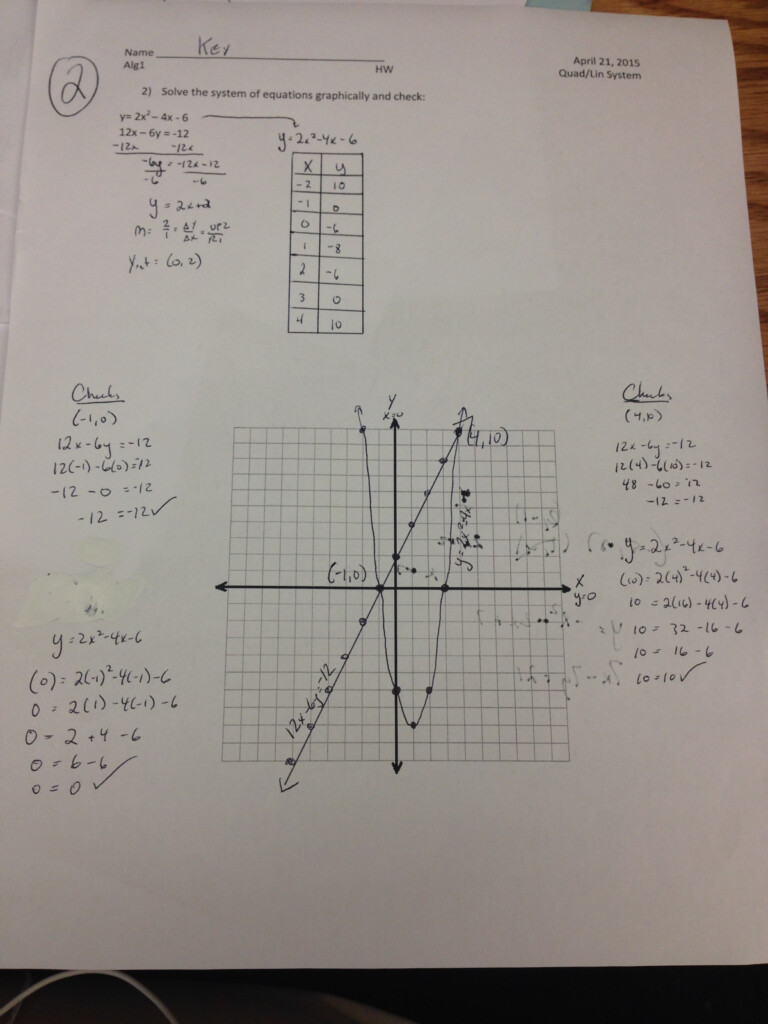 2
Name Key
Alg1
HW
April 21, 2015
Quad/Lin System
2) Solve the system of equations graphically and check:
y= 2x² – 4x - 6
12x – 6y = -12
-12x -12x
-6y = -12x -12
-6 -6
y = 2x+2
m= 2/1 = Δy/Δx = UP2/R1
Yint = (0,2)
y=2x²-4x-6
X y
-2 10
-1 0
0 -6
1 -8
2 -6
3 0
4 10
Check
(-1,0)
12x-6y=-12
12(-1)-6(0)=-12
-12 - 0 = -12
-12 = -12 ✓
y=2x²-4x-6
(0)= 2(-1)²-4(-1)-6
0 = 2(1) -4(-1) -6
0 = 2 +4 -6
0 = 6-6
0 = 0 ✓
Y
x=0
(4,10)
(-1,0)
X
y=0
12x-6y=-12
y=2x²-4x-6
Check
(4,10)
12x-6y=-12
12(4)-6(10)=-12
48 -60 = -12
-12 = -12
y=2x²-4x-6
(10)=2(4)²-4(4)-6
10 = 2(16)-4(4)-6
10 = 32 -16 -6
10 = 16 -6
10=10 ✓